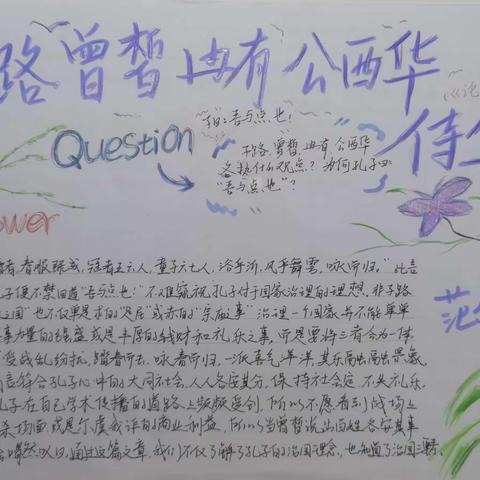 路 曾皙 冉有 公西华
侍坐
《论
曰：吾与点也！
Question
子路、曾皙、冉有、公西华
各执什么观点？为何孔子曰
“吾与点也”？
ower
者，春服既成，冠者五六人，童子六七人，浴乎沂，风乎舞雩，咏而归。”此言
子便不禁回道“吾与点也！”不难窥视孔子对于国家治理的理想，非子路
之国”也不仅单是求的“足民”或赤的“宗庙事”治理一个国家并不能单单
事力量的强盛或是丰厚的钱财和礼乐之事，而是要将三者合为一体
受战乱纷扰，踏春而去，咏春而归，一派喜气洋洋，其乐融融景象
言符合孔子心中的大同社会，人人各安其分，保持社会运
子在自己学术传播的道路上频频受创，所以不愿看到战场上
杀场面或是尔虞我诈的商业利益，所以当曾皙说出百姓各安其事
喟然叹曰，通过这篇文章，我们不仅了解了孔子的治国理念，也知道了治国之
范